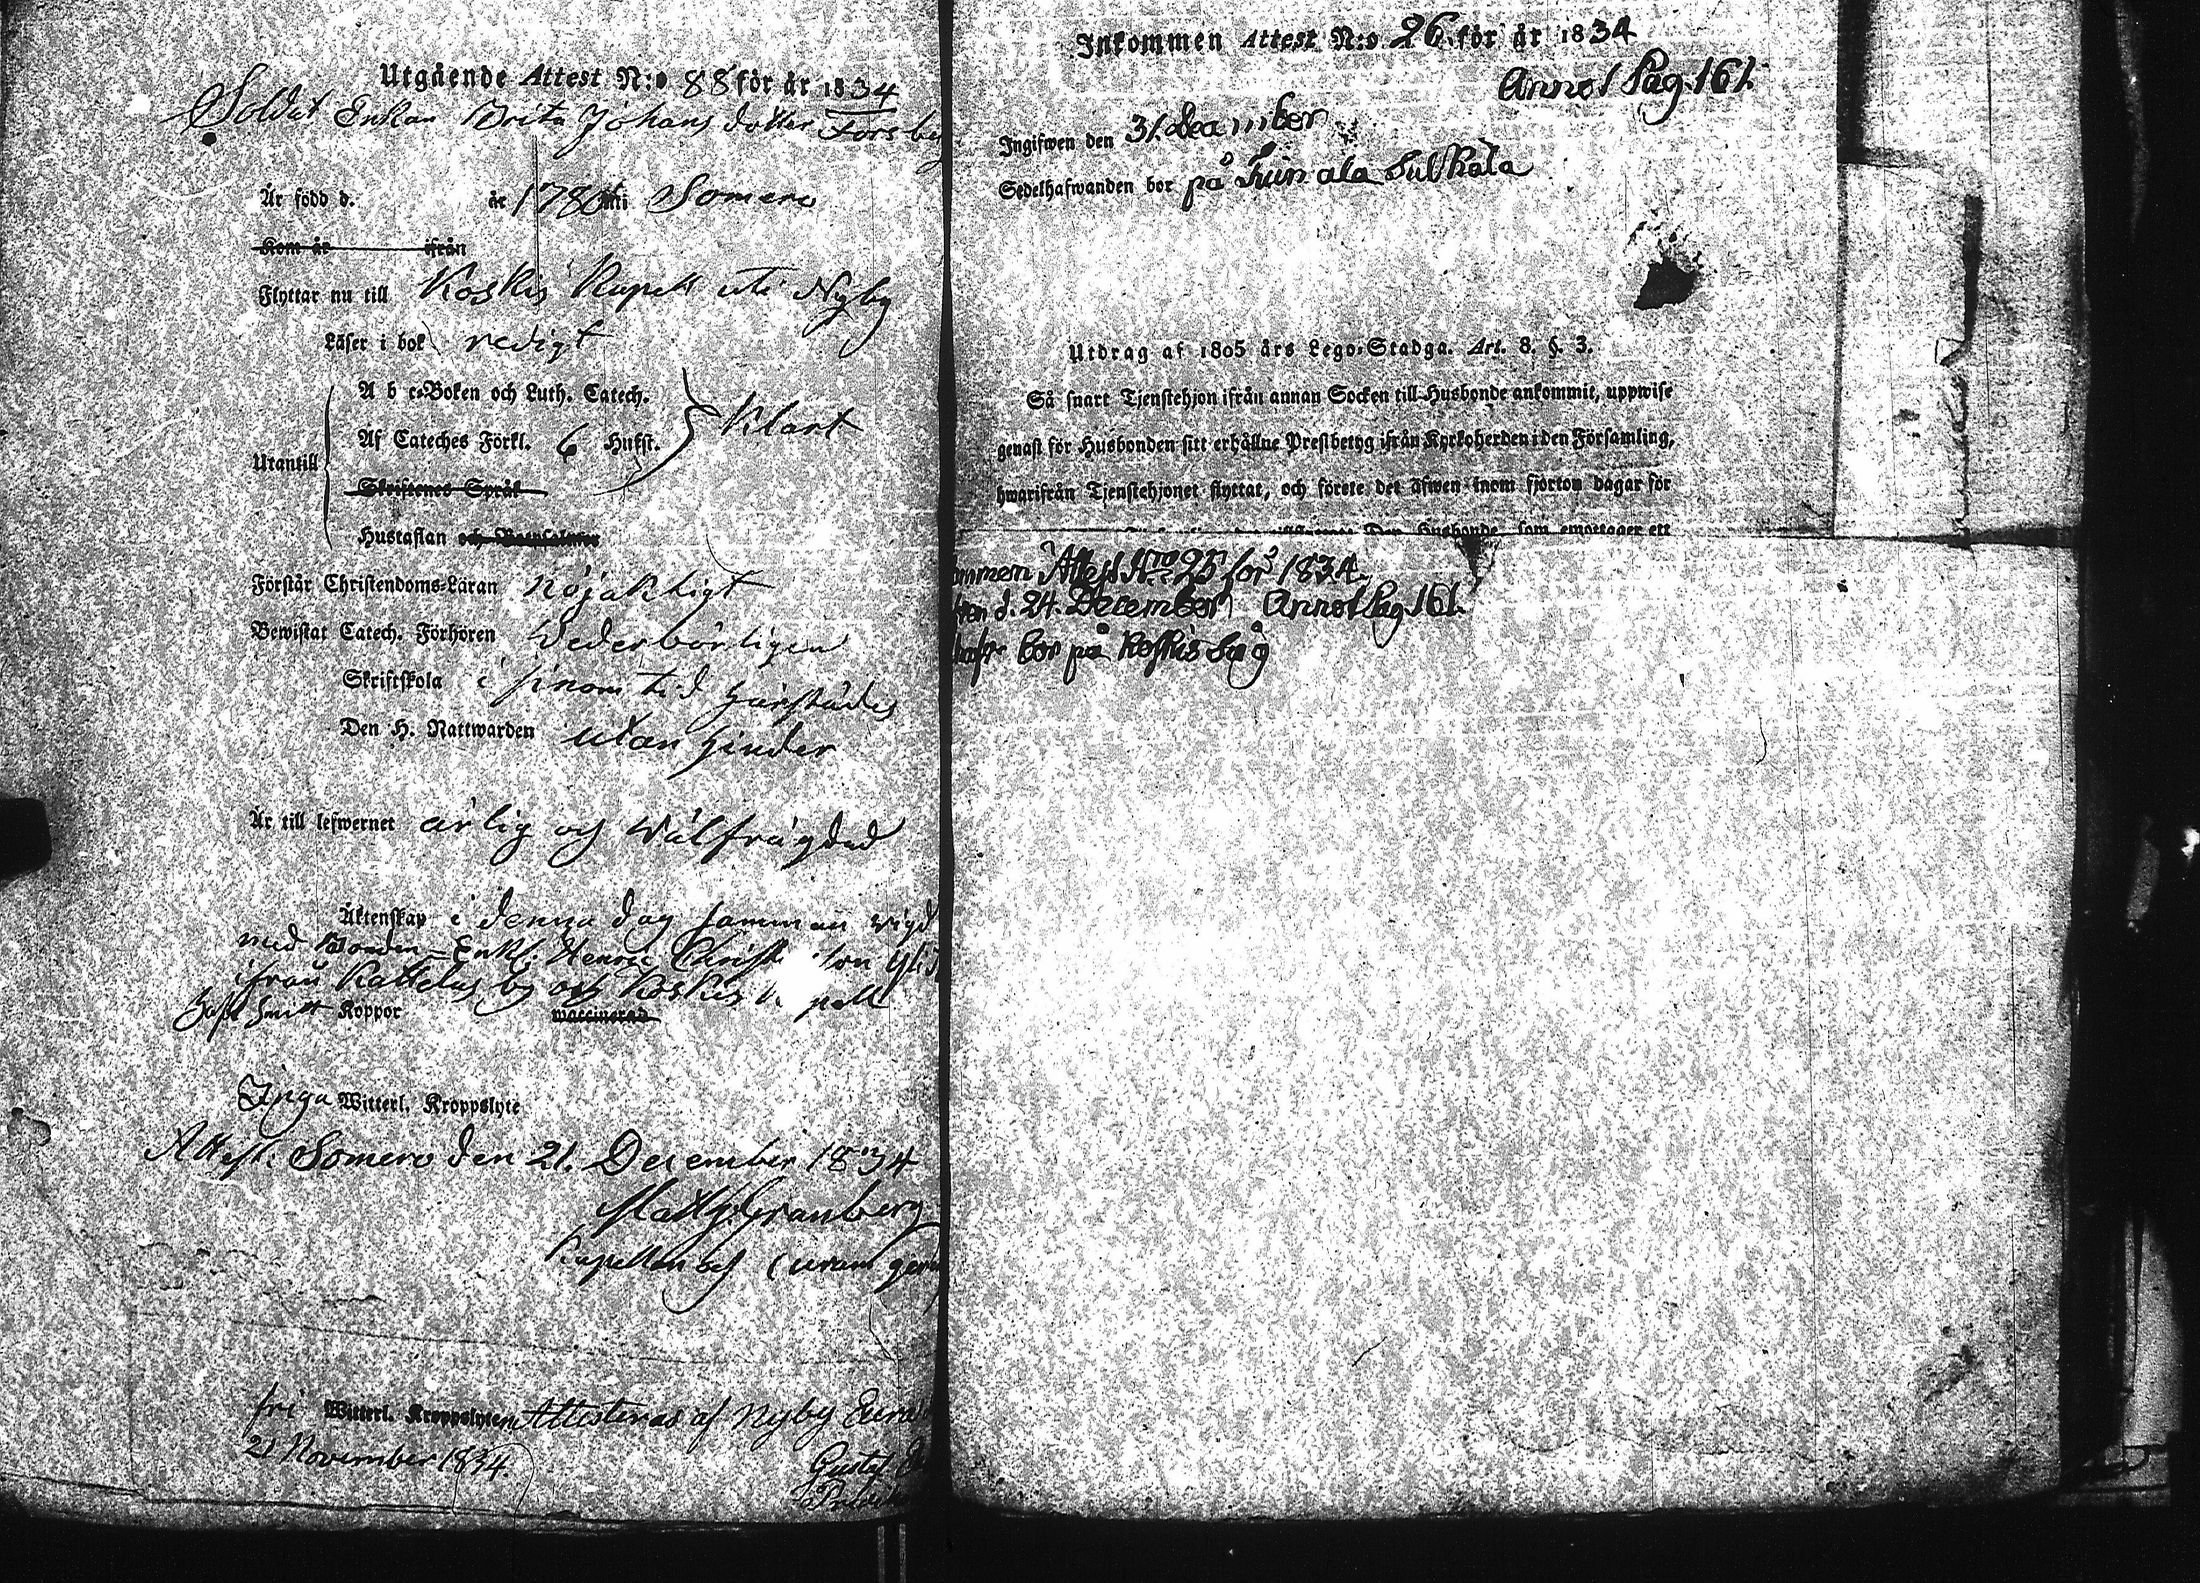 Utgående Attest N:o 88 för år 1834
Soldat Enkan Brita Johans dotter Forsberg
Är född d. år 1786 uti Somero
Kom år ifrån
Flyttar nu till Koskis Kapell uti Nyby
Läser i bok redigt
A b c-Boken och Luth. Catech.
Af Cateches Förkl. 6 Hufst. Klart
Utantill
Skriftenes Språk
Hustaflan och
Förstår Christendoms-Läran nöjaktigt
Bewistat Catech. Förhören Wederbörligen
Skriftskola i sinom tid härstädes
Den H. Nattwarden utan hinder
Är till lefwernet ärlig och Wälfrägdad
Äktenskap i denna dag samman wigd
med Enkl. Henric Christ
ifrån Kattelus by och Koskis
Haft Koppor waccinerad
Inga Witterl. Kroppslyte
Attest. Somero den 21. December 1834
Matts Granberg
Kapellan och Curam
fri Witterl. Kroppslyten Attesteras af Nyby
21 November 1834.
Gustaf
Inkommen Attest N:o 26 för år 1834
Annot Pag. 161.
Ingifwen den 31. December
Sedelhafwanden bor på
Utdrag af 1805 års Lego-Stadga. Art. 8. §. 3.
Så snart Tjenstehjon ifrån annan Socken till Husbonde ankommit, uppwise
genast för Husbonden sitt erhållne Prestbetyg ifrån Kyrkoherden i den Församling,
hwarifrån Tjenstehjonet flyttat, och förete det äfwen inom fjorton dagar för
Den Husbonde, som emottager ett
ommen Attest N:o 25 för 1834
wen d. 24. December Annot Pag. 161.
hafw bor på Koskis Såg